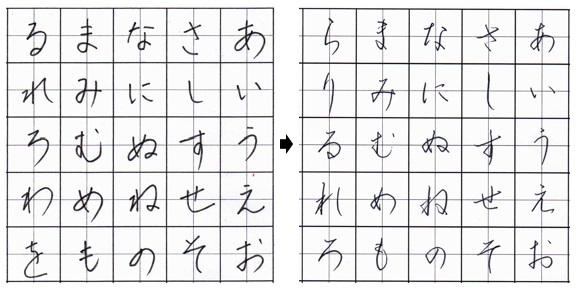 あいうえお
さしすせそ
なにぬねの
まみむめも
るれろわを
あいうえお
さしすせそ
なにぬねの
まみむめも
らりるれろ